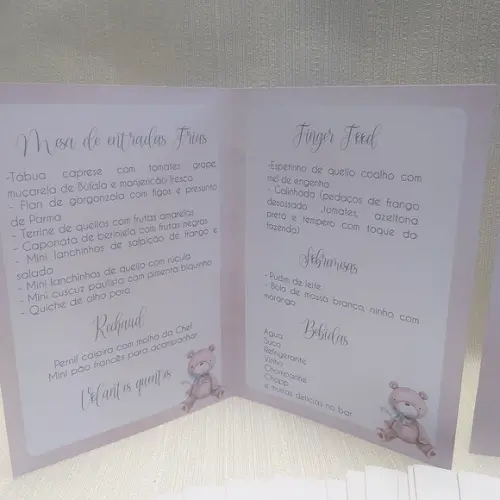 Mesa de entradas Frias
-Tábua caprese com tomates grape
muçarela de Búfala e manjericão fresco
- Flan de gorgonzola com figos e presunto
de Parma
- Terrine de queijos com frutas amarelas
- Caponata de berinjela com frutas negras
- Mini lanchinhos de salpicão de frango e
salada
- Mini lanchinhos de queijo com rúcula
- Mini cuscuz paulista com pimenta biquinho
- Quiche de alho poró
Rechaud
Pernil caipira com molho da Chef
Mini pão francês para acompanhar
Volantes quentes
Finger Food
-Espetinho de queijo coalho com
mel de engenho
- Galinhada (pedaços de frango
desossado, tomates, azeitona
preta e tempero com toque da
fazenda)
Sobremesas
- Pudim de leite
- Bolo de massa branca, ninho com
morango
Bebidas
Agua
Suco
Refrigerante
Vinho
Champanhe
Chopp
e muitas delícias no bar